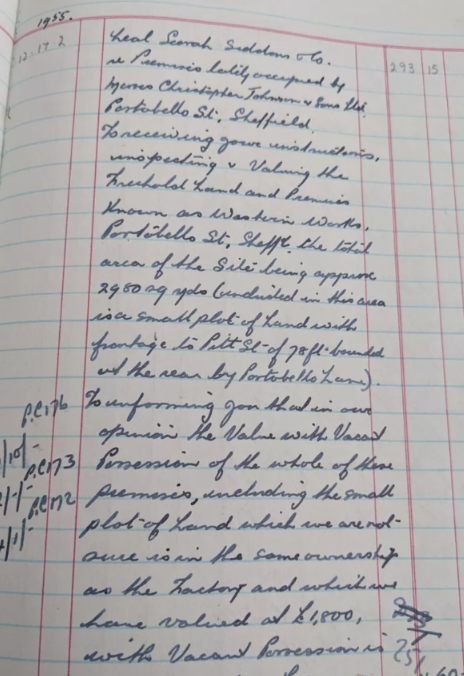 1955.
12.17.2
Neal Scorah Siddons & Co.
re Premises lately occupied by
Messrs Christopher Johnson & Sons Ltd.
Portobello St, Sheffield.
293 15
To receiving your instructions,
inspecting & Valuing the
Freehold Land and Premises
Known as Western Works,
Portobello St, Sheffd. the total
area of the Site being approx
2980 sq yds (included in this area
is a small plot of Land with
frontage to Pitt St of 78ft bounded
at the rear by Portobello Lane).
P.C176 To informing you that in our
opinion the Value with Vacant
P.C173 Possession of the whole of these
P.C172 premises, including the small
plot of Land which we are not
sure is in the same ownership
as the Factory and which we
have valued at £1,800,
with Vacant Possession is
25/